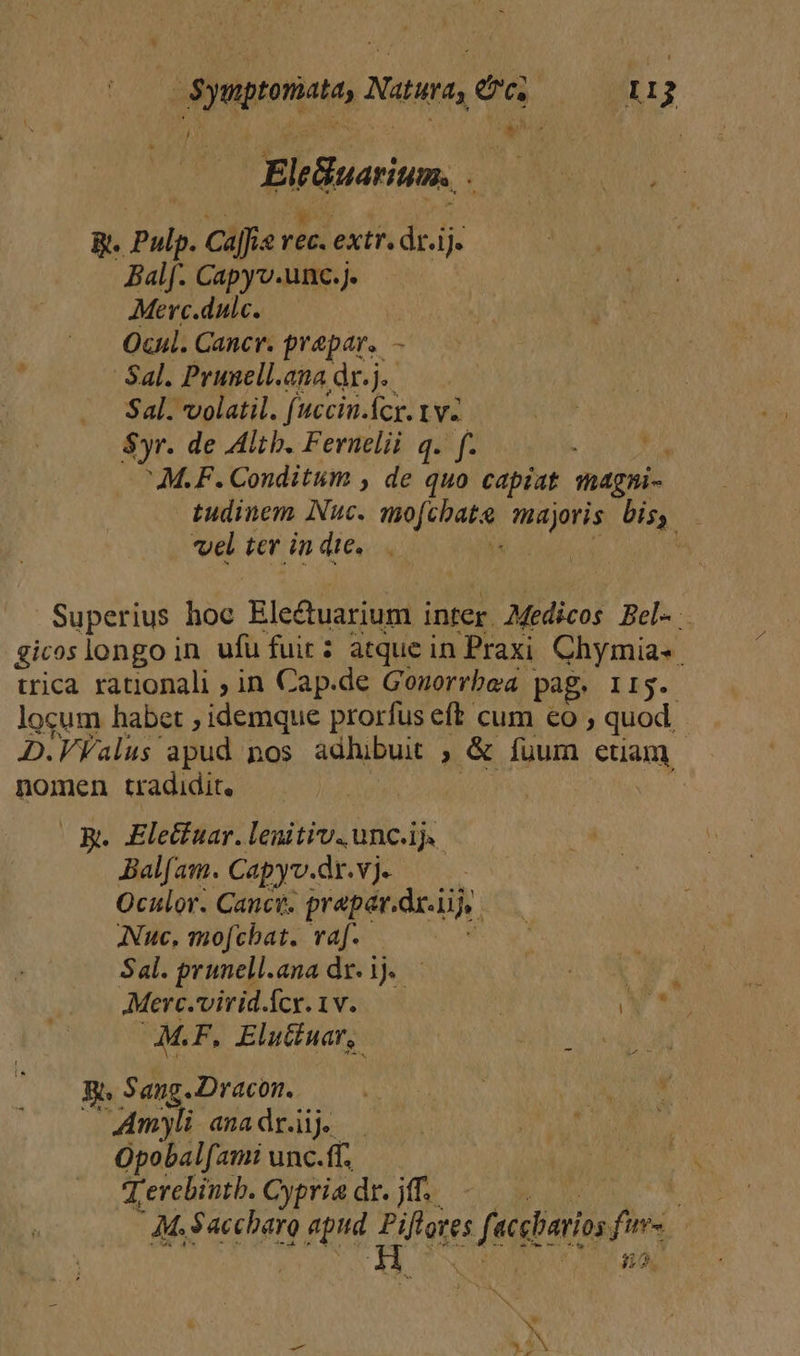 Symptomata, Natura, &c. 113
Electuarium.
℞. Pulp. Caſſiæ rec. extr. dr.ij.
Balſ. Capyv.unc.j.
Merc.dulc.
Ocul. Cancr. præpar.
Sal. Prunell.ana dr.j.
Sal. volatil. ſuccin.ſcr.ıv.
Syr. de Alth. Fernelii q. ſ.
M.F. Conditum, de quo capiat magni-
tudinem Nuc. moſchatæ majoris bis,
vel ter in die.
Superius hoc Electuarium inter Medicos Bel-
gicos longo in uſu fuit: atque in Praxi Chymia-
trica rationali, in Cap.de Gonorrhœa pag. 115.
locum habet, idemque prorſus eſt cum eo, quod
D.VValus apud nos adhibuit, & ſuum etiam
nomen tradidit.
℞. Electuar. lenitiv. unc.ij.
Balſam. Capyv.dr.vj.
Oculor. Cancr. præpar.dr.iij.
Nuc. moſchat. raſ.
Sal. prunell.ana dr. ij.
Merc.virid.ſcr.ıv.
M.F. Eluctuar.
℞. Sang.Dracon.
Amyli ana dr.iij.
Opobalſami unc.ſſ.
Terebinth. Cypriæ dr. jſſ.
M. Saccharo apud Piſtores ſaccharios fur-
H no.